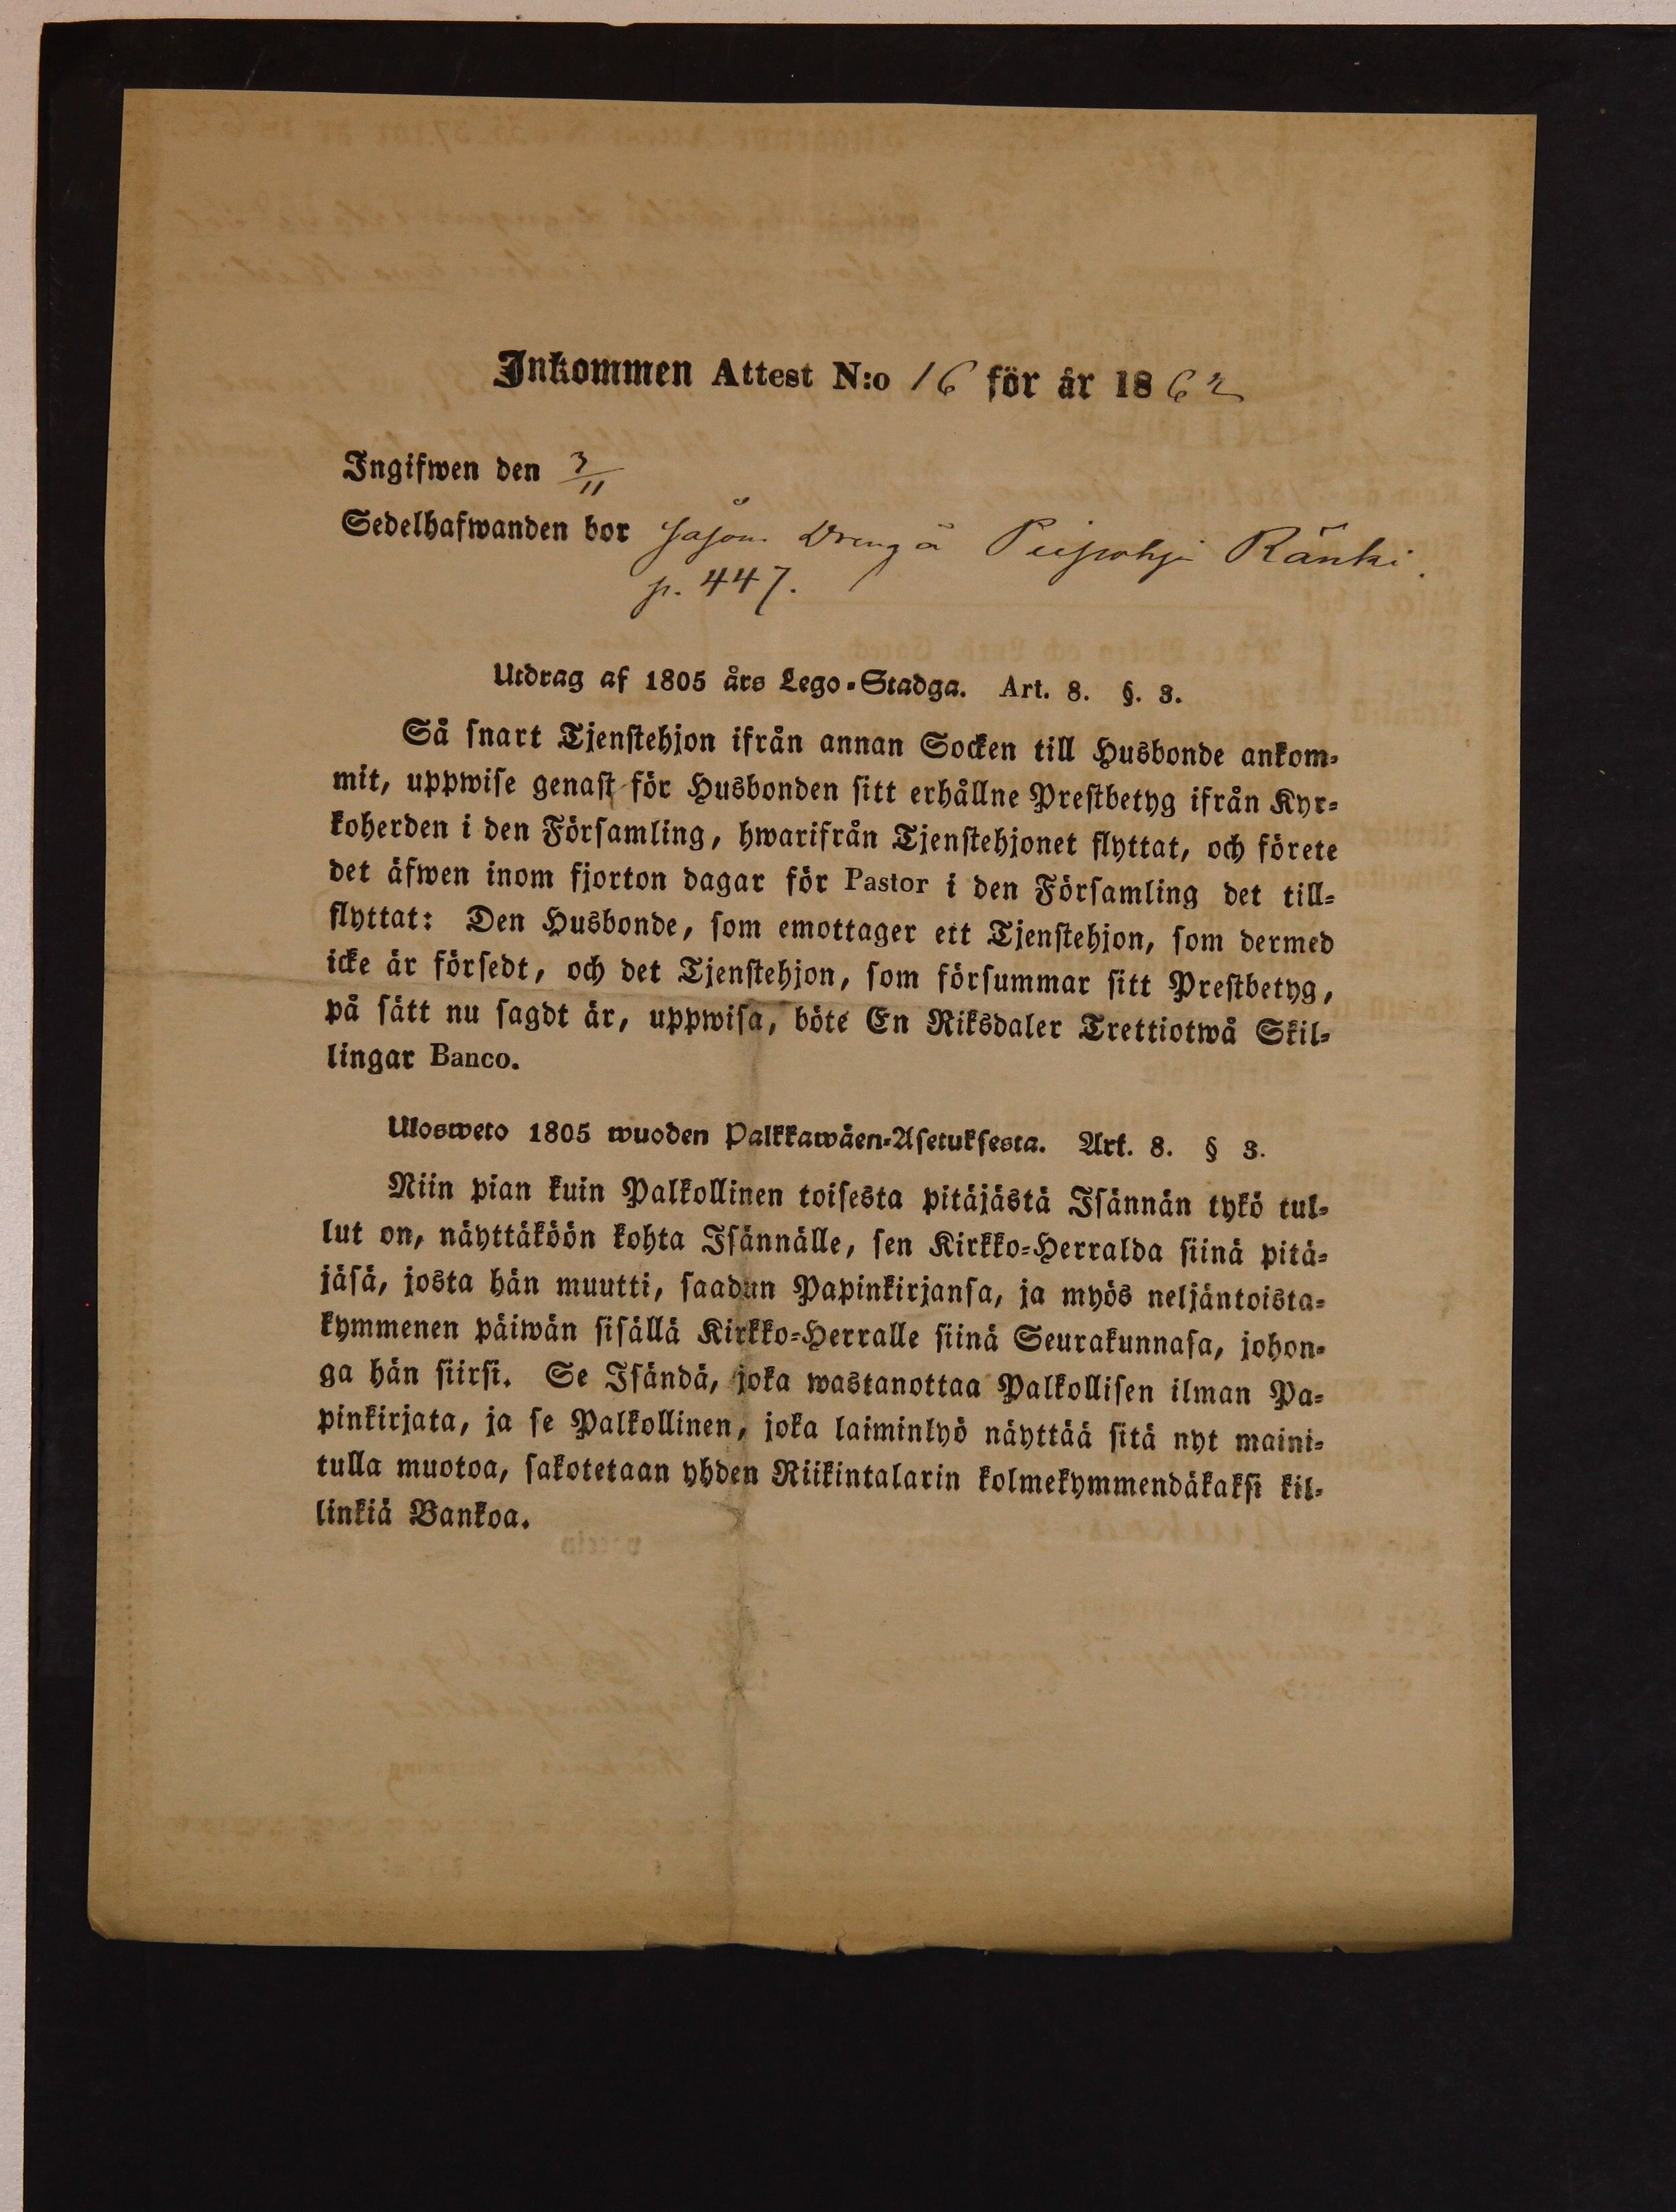 Inkommen Attest N:o 16 för år 1862
Ingifwen den 3/11
Sedelhafwanden bor såsom Dreng å Peipohja Ränki.
p. 447.
Utdrag af 1805 års Lego-Stadga. Art. 8. §. 3.
Så snart Tjenstehjon ifrån annan Socken till Husbonde ankom-
mit, uppwise genast för Husbonden sitt erhållne Prestbetyg ifrån Kyr-
koherden i den Församling, hwarifrån Tjenstehjonet flyttat, och förete
det äfwen inom fjorton dagar för Pastor i den Församling det till-
flyttat: Den Husbonde, som emottager ett Tjenstehjon, som dermed
icke är försedt, och det Tjenstehjon, som försummar sitt Prestbetyg,
på sätt nu sagdt är, uppwisa, böte En Riksdaler Trettiotwå Skil-
lingar Banco.
Ulosweto 1805 wuoden Palkkawäen-Asetuksesta. Art. 8. § 3.
Niin pian kuin Palkollinen toisesta pitäjästä Isännän tykö tul-
lut on, näyttäköön kohta Isännälle, sen Kirkko-Herralda siinä pitä-
jäsä, josta hän muutti, saadun Papinkirjansa, ja myös neljäntoista-
kymmenen päiwän sisällä Kirkko-Herralle siinä Seurakunnasa, johon-
ga hän siirsi. Se Isändä, joka wastanottaa Palkollisen ilman Pa-
pinkirjata, ja se Palkollinen, joka laiminlyö näyttää sitä nyt maini-
tulla muotoa, sakotetaan yhden Riikintalarin kolmekymmendäkaksi kil-
linkiä Bankoa.